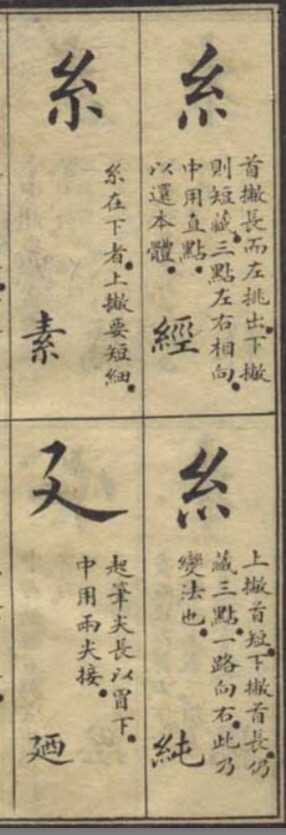 糹
首撇長而左挑出。下撇
則短藏。三點左右相向。
中用直點。
以還本體。
經
糸
糸在下者。上撇要短細。
素
糹
上撇首短。下撇首長。仍
藏三點。一路向右。此乃
變法也。
純
廴
起筆尖長以冒下。
中用兩尖接。
廼